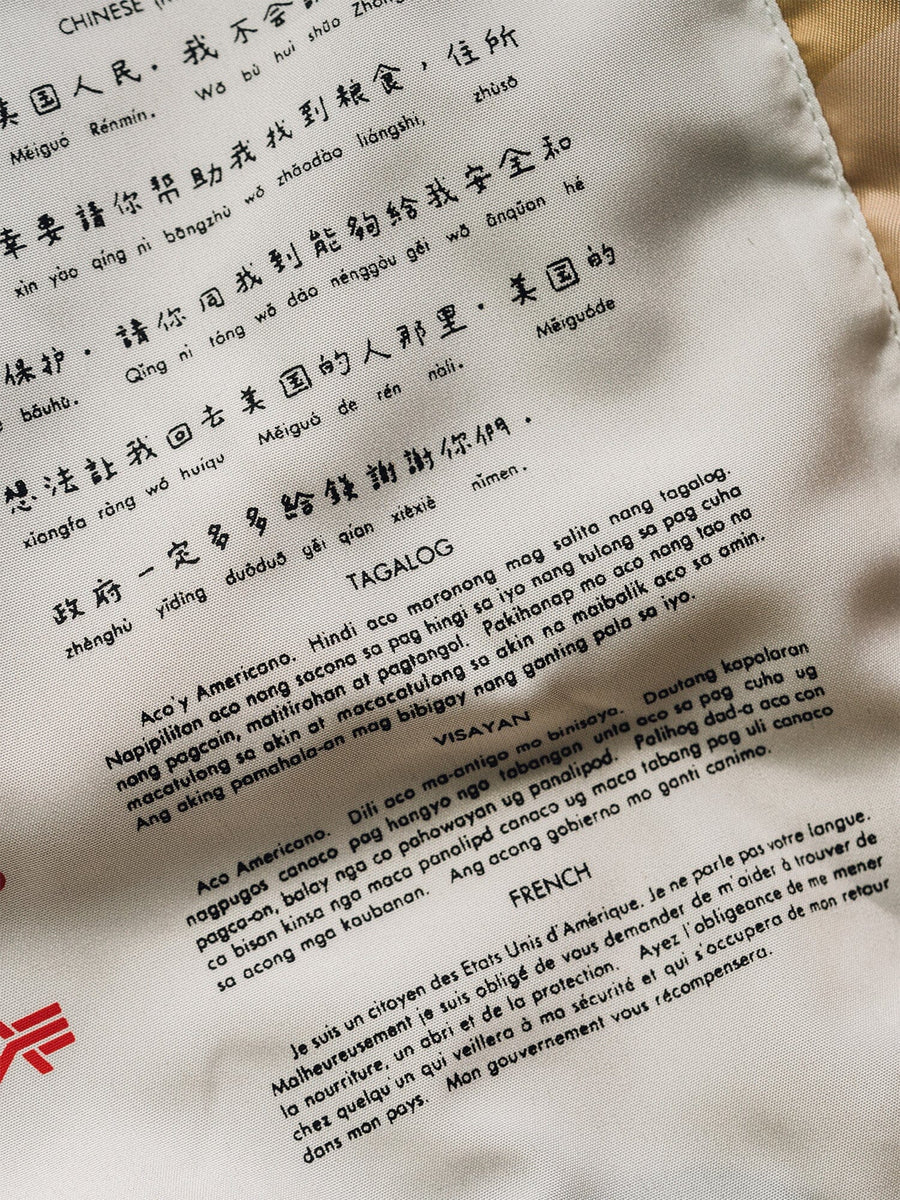 CHINESE
美国人民. 我不会
Měiguó Rénmín. Wǒ bù huì shūo Zhōng
幸要請你帮助我找到粮食, 住所
xìn yào qíng ni bōngzhù wǒ zhǎodào liángshi, zhùsǒ
保护. 請你同我到能夠給我安全和
bǎuhù. Qǐng ni tóng wǒ dào nénggòu gěi wǒ ānqūan hé
想法讓我回去美国的人那里. 美国的
xiangfa ràng wǒ huíqu Měiguó de rén nàli. Měiguóde
政府一定多多給錢謝謝你們.
zhènghù yīding duōduō gěi qian xièxiè nǐmen.
TAGALOG
Aco'y Americano. Hindi aco maronong mag salita nang tagalog.
Napipilitan aco nang sacona sa pag hingi sa iyo nang tulong sa pag cuha
nang pagcain, matitirahan at pagtangol. Pakihanap mo aco nang tao na
macatulong sa akin at macacatulong sa akin na maibalik aco sa amin.
Ang aking pamahala-an mag bibigay nang ganting pala sa iyo.
VISAYAN
Aco Americano. Dili aco ma-antigo mo binisaya. Dautang kapalaran
nagpugos canaco pag hangyo nga tabangan unta aco sa pag cuha ug
pagca-on, balay nga ca pahowayan ug panalipod. Palihog dad-a aco con
ca bisan kinsa nga maca panalipd canaco ug maca tabang pag uli canaco
sa acong mga kaubanan. Ang acong gobierno mo ganti canimo.
FRENCH
Je suis un citoyen des Etats Unis d'Amérique. Je ne parle pas votre langue.
Malheureusement je suis obligé de vous demander de m'aider à trouver de
la nourriture, un abri et de la protection. Ayez l'obligeance de me mener
chez quelqu'un qui veillera à ma sécurité et qui s'occupera de mon retour
dans mon pays. Mon gouvernement vous récompensera.